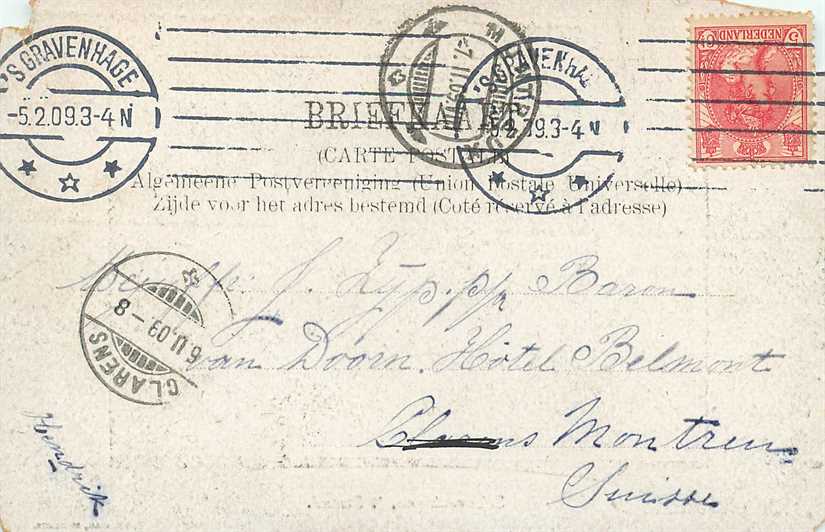 'S GRAVENHAGE
-5.2.09.3-4 N
'S GRAVENHAGE
-5.2.09.3-4 N
MONTREUX
NEDERLAND
5
BRIEFKAART
(CARTE POSTALE)
Algemeene Postvereeniging (Union Postale Universelle)
Zijde voor het adres bestemd (Coté réservé à l'adresse)
Baron
van Doorn. Hôtel Belmont
Clarens Montreux
Suisse
CLARENS
6.II.09.-8
Hendrik